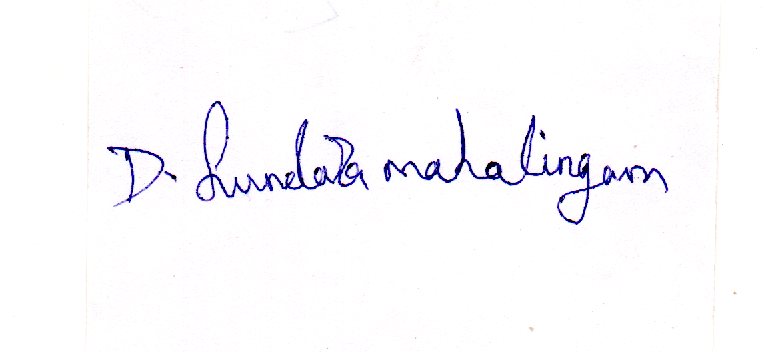 D. Sundara mahalingam